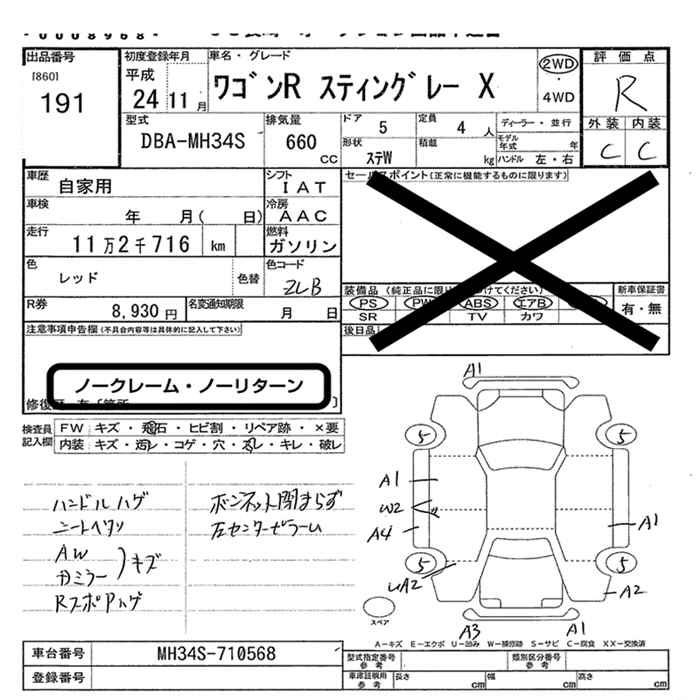 出品番号
[860]
191
初度登録年月
平成
24 11 月
車名・グレード
ワゴンR スティングレー X
2WD
・
4WD
評価点
R
外装 内装
C C
型式
DBA-MH34S
排気量
660
CC
ドア
5
定員
4 人
形状
ステW
積載
kg
ディーラー・並行
モデル年式 年
ハンドル 左・右
車歴
自家用
シフト
IAT
車検
年 月( 日)
冷房
AAC
走行
11万2千716 km
燃料
ガソリン
色
レッド
色替
色コード
ZLB
R券
8,930 円
名変通知期限
月 日
セールスポイント(正常に機能するものに限ります)
装備品
PS PW ABS エアB
SR TV カワ
新車保証書
有・無
後日品
注意事項申告欄(不具合内容等は具体的に記入して下さい)
ノークレーム・ノーリターン
検査員
記入欄
FW キズ・飛石・ヒビ割・リペア跡・×要
内装 キズ・汚レ・コゲ・穴・スレ・キレ・破レ
ハンドルハゲ
AW
カミラー
キズ
ボンネット閉まらず
A1
5 5
A1
W2
A4
A1
5 5
A2
スペア
A3 A1
A-キズ E-エクボ U-凹み W-補修跡 S-サビ C-腐食 XX-交換済
車台番号
MH34S-710568
登録番号
型式指定番号
参考
類別区分番号
参考
車庫証明用
参考
長さ cm
幅 cm
高さ cm